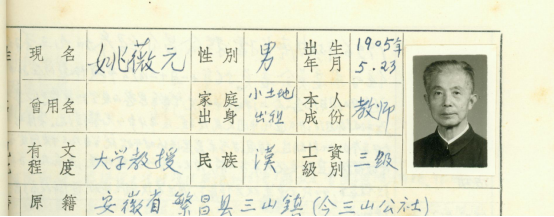 現名 姚薇元 性別 男 出生年月 1905年5.23
曾用名 家庭出身 小土地出租 本人成份 教师
文程度 大学教授 民族 漢 工資級別 三级
原籍 安徽省繁昌县三山鎮(今三山公社)